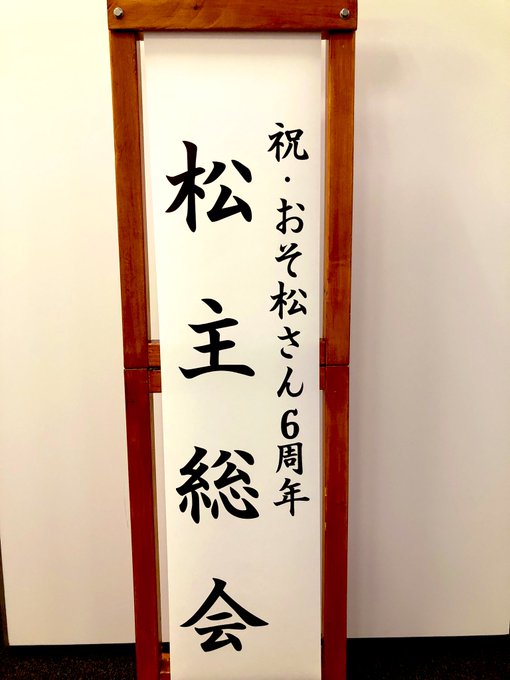 祝・おそ松さん6周年
松主総会